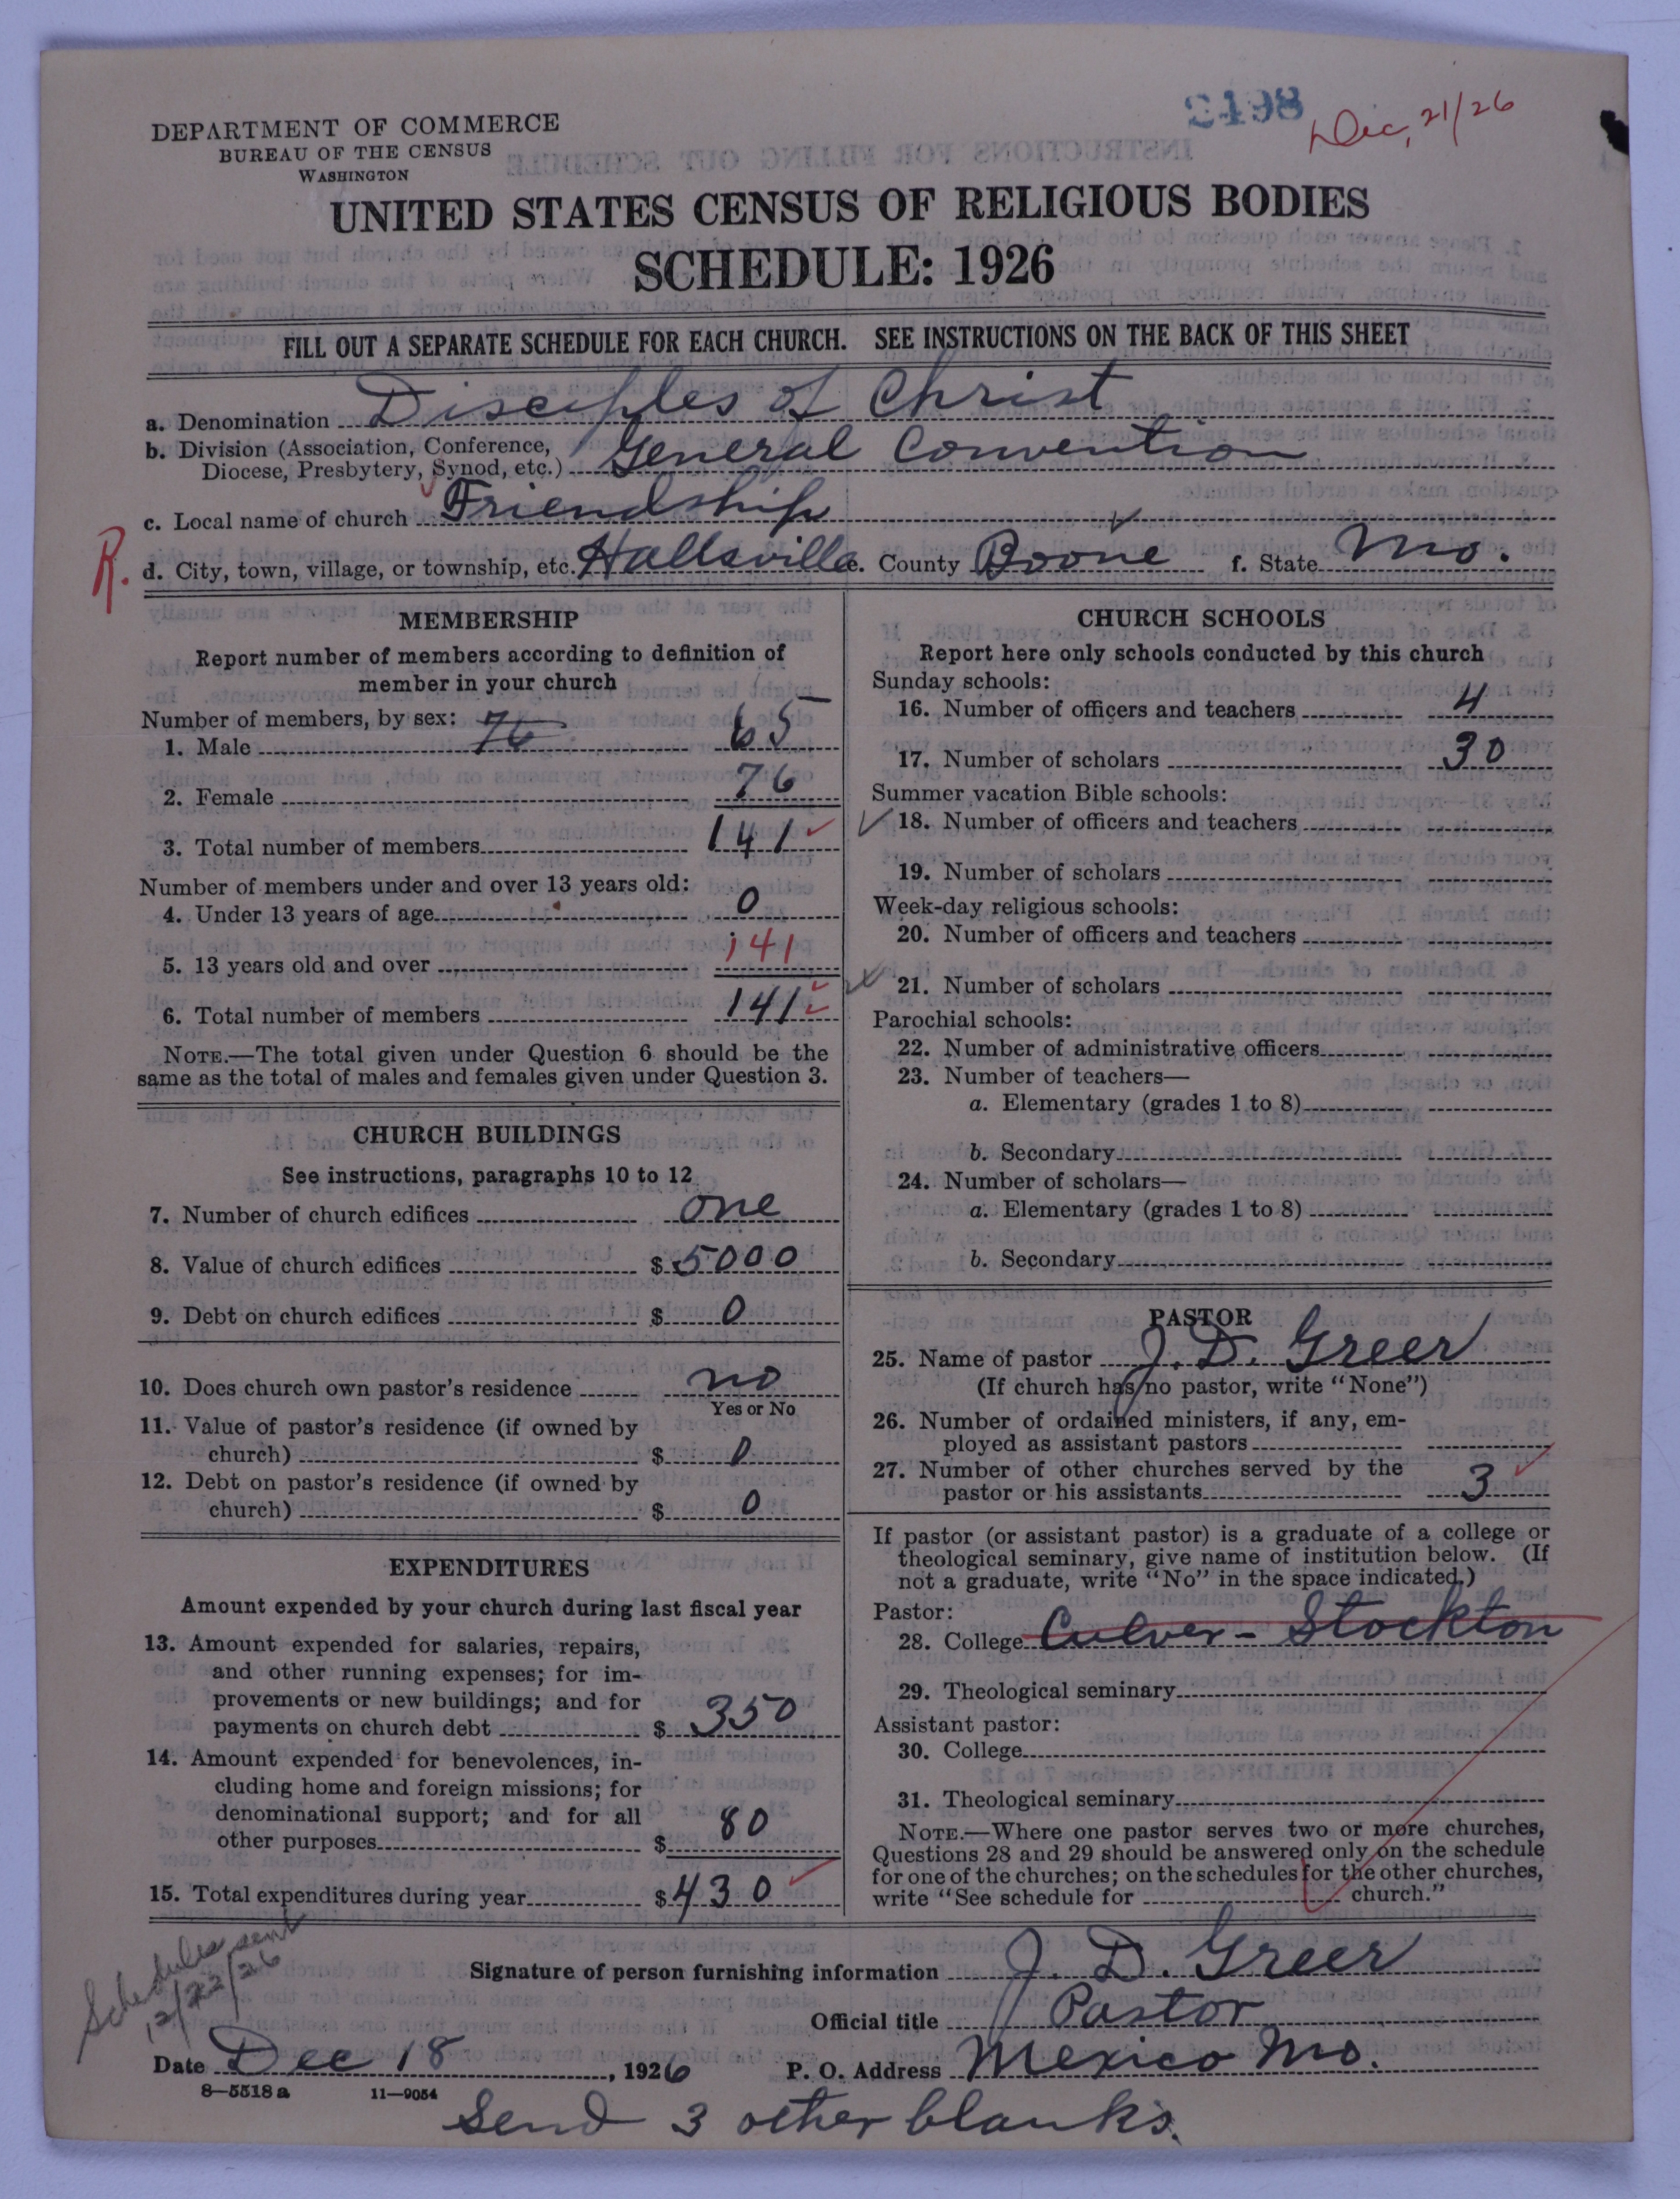 2498
Dec, 21/26
DEPARTMENT OF COMMERCE
BUREAU OF THE CENSUS
WASHINGTON
UNITED STATES CENSUS OF RELIGIOUS BODIES
SCHEDULE: 1926
FILL OUT A SEPARATE SCHEDULE FOR EACH CHURCH. SEE INSTRUCTIONS ON THE BACK OF THIS SHEET
a. Denomination Disciples of Christ
b. Division (Association, Conference,
Diocese, Presbytery, Synod, etc.) General Convention
c. Local name of church Friendship
R. d. City, town, village, or township, etc. Hallsville e. County Boone f. State Mo.
MEMBERSHIP
Report number of members according to definition of
member in your church
Number of members, by sex: 76
1. Male 65
2. Female 76
3. Total number of members 141
Number of members under and over 13 years old:
4. Under 13 years of age 0
5. 13 years old and over 141
6. Total number of members 141
NOTE.—The total given under Question 6 should be the
same as the total of males and females given under Question 3.
CHURCH BUILDINGS
See instructions, paragraphs 10 to 12
7. Number of church edifices one
8. Value of church edifices $ 5000
9. Debt on church edifices $ 0
10. Does church own pastor's residence no
Yes or No
11. Value of pastor's residence (if owned by
church) $ 0
12. Debt on pastor's residence (if owned by
church) $ 0
EXPENDITURES
Amount expended by your church during last fiscal year
13. Amount expended for salaries, repairs,
and other running expenses; for im-
provements or new buildings; and for
payments on church debt $ 350
14. Amount expended for benevolences, in-
cluding home and foreign missions; for
denominational support; and for all
other purposes $ 80
15. Total expenditures during year $ 430
CHURCH SCHOOLS
Report here only schools conducted by this church
Sunday schools:
16. Number of officers and teachers 4
17. Number of scholars 30
Summer vacation Bible schools:
18. Number of officers and teachers
19. Number of scholars
Week-day religious schools:
20. Number of officers and teachers
21. Number of scholars
Parochial schools:
22. Number of administrative officers
23. Number of teachers—
a. Elementary (grades 1 to 8)
b. Secondary
24. Number of scholars—
a. Elementary (grades 1 to 8)
b. Secondary
PASTOR
25. Name of pastor J. D. Greer
(If church has no pastor, write "None")
26. Number of ordained ministers, if any, em-
ployed as assistant pastors
27. Number of other churches served by the
pastor or his assistants 3
If pastor (or assistant pastor) is a graduate of a college or
theological seminary, give name of institution below. (If
not a graduate, write "No" in the space indicated.)
Pastor:
28. College Culver - Stockton
29. Theological seminary
Assistant pastor:
30. College
31. Theological seminary
NOTE.—Where one pastor serves two or more churches,
Questions 28 and 29 should be answered only on the schedule
for one of the churches; on the schedules for the other churches,
write "See schedule for church."
Schedules sent
12/22/26
Signature of person furnishing information J. D. Greer
Official title Pastor
Date Dec 18, 1926 P. O. Address Mexico Mo.
8—5518 a 11—9054
Send 3 other blanks.